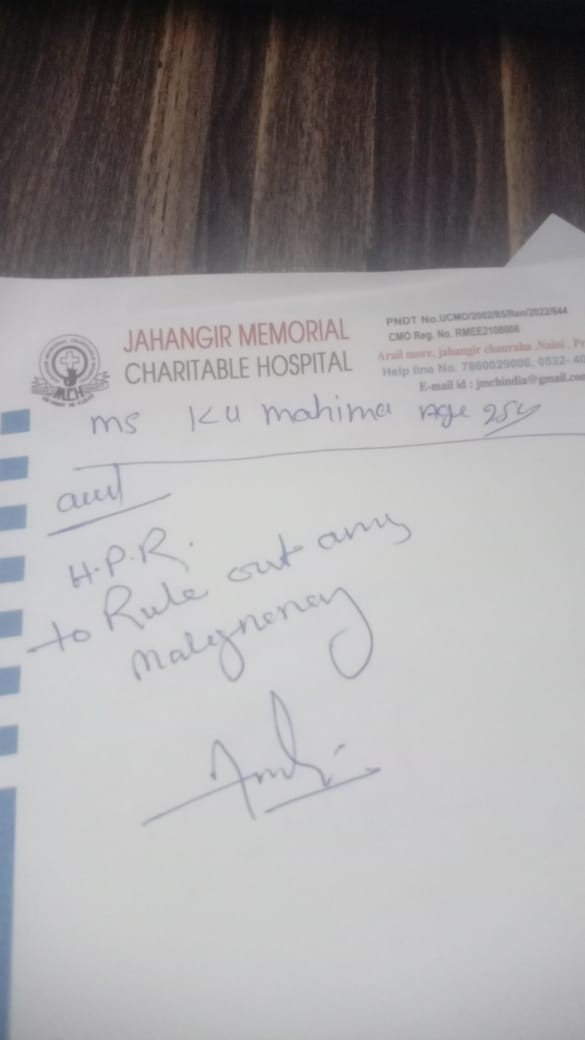 JAHANGIR MEMORIAL
CHARITABLE HOSPITAL
PNDT No.UCMO/2002/85/Ran/2022/644
CMO Reg. No. RMEE2108006
Arail more, jahangir chauraha ,Naini , Pr
Help line No. 7860029006, 0532- 40
E-mail id : jmchindia@gmail.com
ms KU mahima Age 25y
H.P.R.
to Rule out any
malegnency